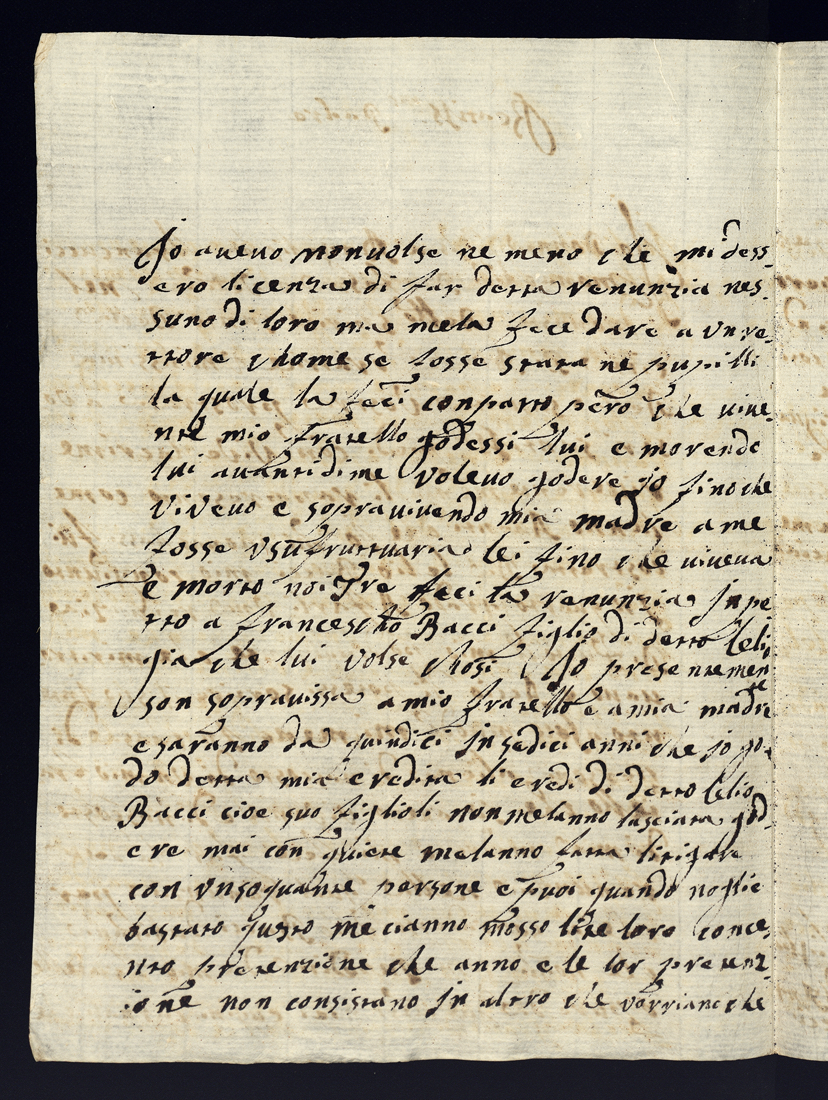 Jo auevo non volse ne meno che mi dess-
ero licenzia di far detta renunzia nes-
suno di loro ma mela fece dare a un re-
ttore chome se fosse stata ne pupilli
la quale la feci con patto pero che vive-
nte mio fratello godessi lui e morendo
lui avantidime volevo godere jo fino che
vivevo e sopravivendo mia madre a me
fosse vsufruttuaria lei fino che viveva
e morto noi tre feci la renunzia in pe
tto a francescho Bacci figlio di detto Celi
gia che lui volse chosi Jo presentemen
te
son sopravissa a mio fratello e a mia madre
e saranno da quindici in sedici anni che jo go-
do detta mia eredita li eredi di detto Celio
Bacci cioe suo figlioli non melanno lasciata god-
ere mai con quiete melanno fatta litigare
con vnsoquante persone e puoi quando noglie
bastato questo me cianno mosso lite loro conce-
nto pretenzione che anno e le lor pretenz-
ione non consistano in altro che vorriano che